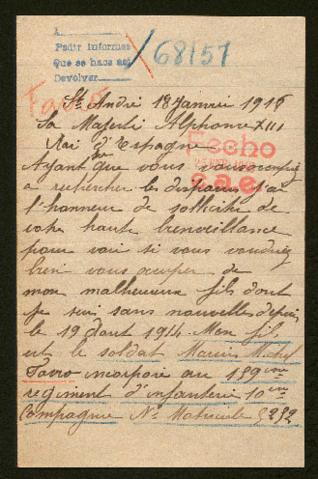 A
Pedir informes
Que se haga así
Devolver
68157
Favro
St André 18 Janvier 1916
Sa Majesté Alphonse XIII
Roi d'Espagne
Echo
Ayant que vous vous
a rechercher les disparus j'ai
l'honneur de sollicite de
votre haute bienveillance
pour voir si vous voudriez
bien vous occuper de
mon malheureux fils dont
je suis sans nouvelles depuis
le 19 Aout 1914 Mon fils
est le soldat Marius Michel
Favro incorporé au 159eme
regiment d'infanterie 10eme
Compagnie No Matricule 5232